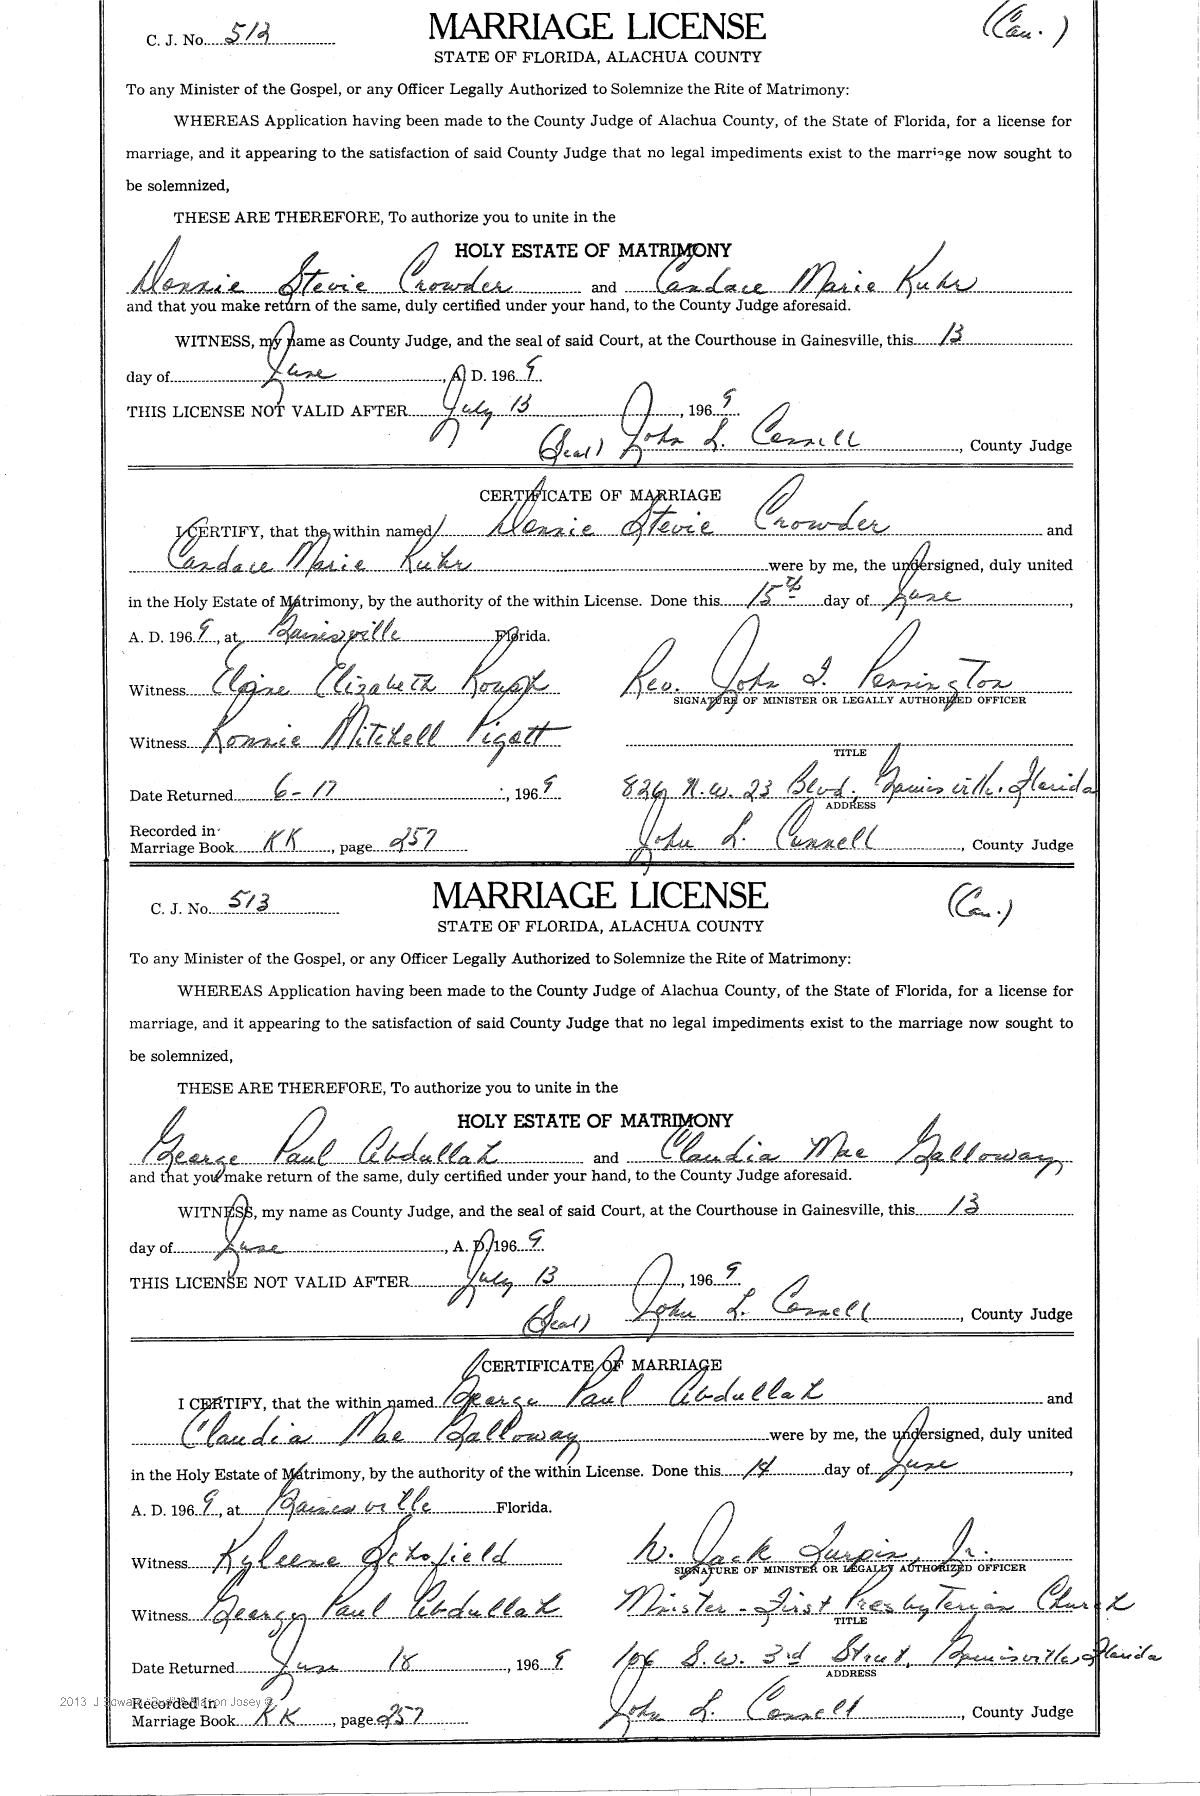 C. J. No. 512 MARRIAGE LICENSE (Cau.)
STATE OF FLORIDA, ALACHUA COUNTY
To any Minister of the Gospel, or any Officer Legally Authorized to Solemnize the Rite of Matrimony:
WHEREAS Application having been made to the County Judge of Alachua County, of the State of Florida, for a license for
marriage, and it appearing to the satisfaction of said County Judge that no legal impediments exist to the marriage now sought to
be solemnized,
THESE ARE THEREFORE, To authorize you to unite in the
HOLY ESTATE OF MATRIMONY
Donnie Stevie Crowder and Candace Marie Kuhr
and that you make return of the same, duly certified under your hand, to the County Judge aforesaid.
WITNESS, my name as County Judge, and the seal of said Court, at the Courthouse in Gainesville, this 13
day of June, A. D. 1969
THIS LICENSE NOT VALID AFTER July 13, 1969
(Seal) John L. Connell, County Judge
CERTIFICATE OF MARRIAGE
I CERTIFY, that the within named Donnie Stevie Crowder and
Candace Marie Kuhr were by me, the undersigned, duly united
in the Holy Estate of Matrimony, by the authority of the within License. Done this 15th day of June,
A. D. 1969, at Gainesville Florida.
Witness Elizabeth Rev. John I. Pennington
SIGNATURE OF MINISTER OR LEGALLY AUTHORIZED OFFICER
Witness Ronnie Mitchell Pigott
TITLE
Date Returned 6-17, 1969 826 N.W. 23 Blvd. Gainesville, Florida
ADDRESS
Recorded in
Marriage Book KK, page 257 John L. Connell, County Judge
C. J. No. 513 MARRIAGE LICENSE (Cau.)
STATE OF FLORIDA, ALACHUA COUNTY
To any Minister of the Gospel, or any Officer Legally Authorized to Solemnize the Rite of Matrimony:
WHEREAS Application having been made to the County Judge of Alachua County, of the State of Florida, for a license for
marriage, and it appearing to the satisfaction of said County Judge that no legal impediments exist to the marriage now sought to
be solemnized,
THESE ARE THEREFORE, To authorize you to unite in the
HOLY ESTATE OF MATRIMONY
George Paul Abdullah and Claudia Mae Galloway
and that you make return of the same, duly certified under your hand, to the County Judge aforesaid.
WITNESS, my name as County Judge, and the seal of said Court, at the Courthouse in Gainesville, this 13
day of June, A. D. 1969
THIS LICENSE NOT VALID AFTER July 13, 1969
(Seal) John L. Connell, County Judge
CERTIFICATE OF MARRIAGE
I CERTIFY, that the within named George Paul Abdullah and
Claudia Mae Galloway were by me, the undersigned, duly united
in the Holy Estate of Matrimony, by the authority of the within License. Done this 14 day of June,
A. D. 1969, at Gainesville Florida.
Witness Kyleene Schofield W. Jack Turpin, Jr.
SIGNATURE OF MINISTER OR LEGALLY AUTHORIZED OFFICER
Witness George Paul Abdullah Minister - First Presbyterian Church
TITLE
Date Returned June 18, 1969 106 S.W. 3rd Street, Gainesville, Florida
ADDRESS
Recorded in
Marriage Book KK, page 257 John L. Connell, County Judge